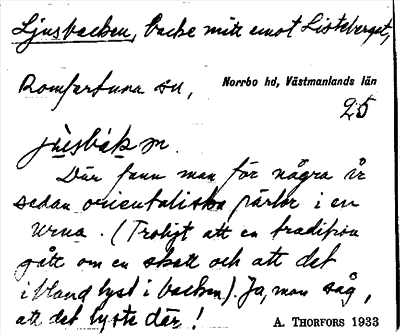 Ljusbacken, backe mitt emot Listeberget,
Romfartuna sn,
Norrbo hd, Västmanlands län
25
Där fann man för några år
sedan orientaliska pärlor i en
urna. (Troligt att en tradition
gått om en skatt och att det
ibland lyst i backen). Ja, man såg,
att det lyste där!
A. THORFORS 1933